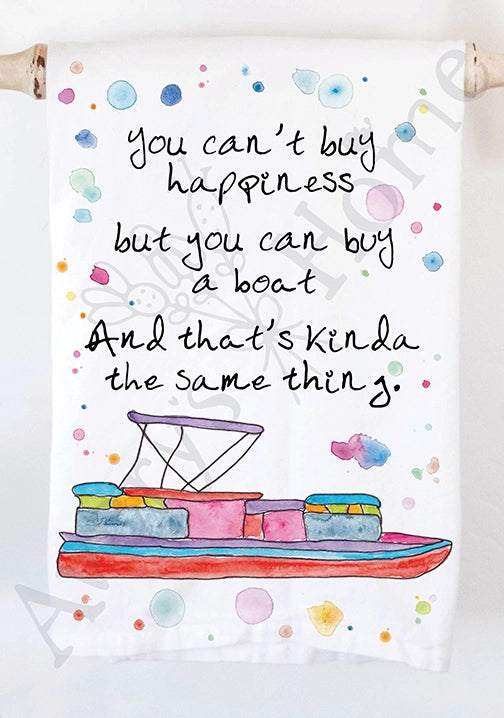 you can't buy
happiness
but you can buy
a boat
And that's kinda
the same thing.
Avery's Home